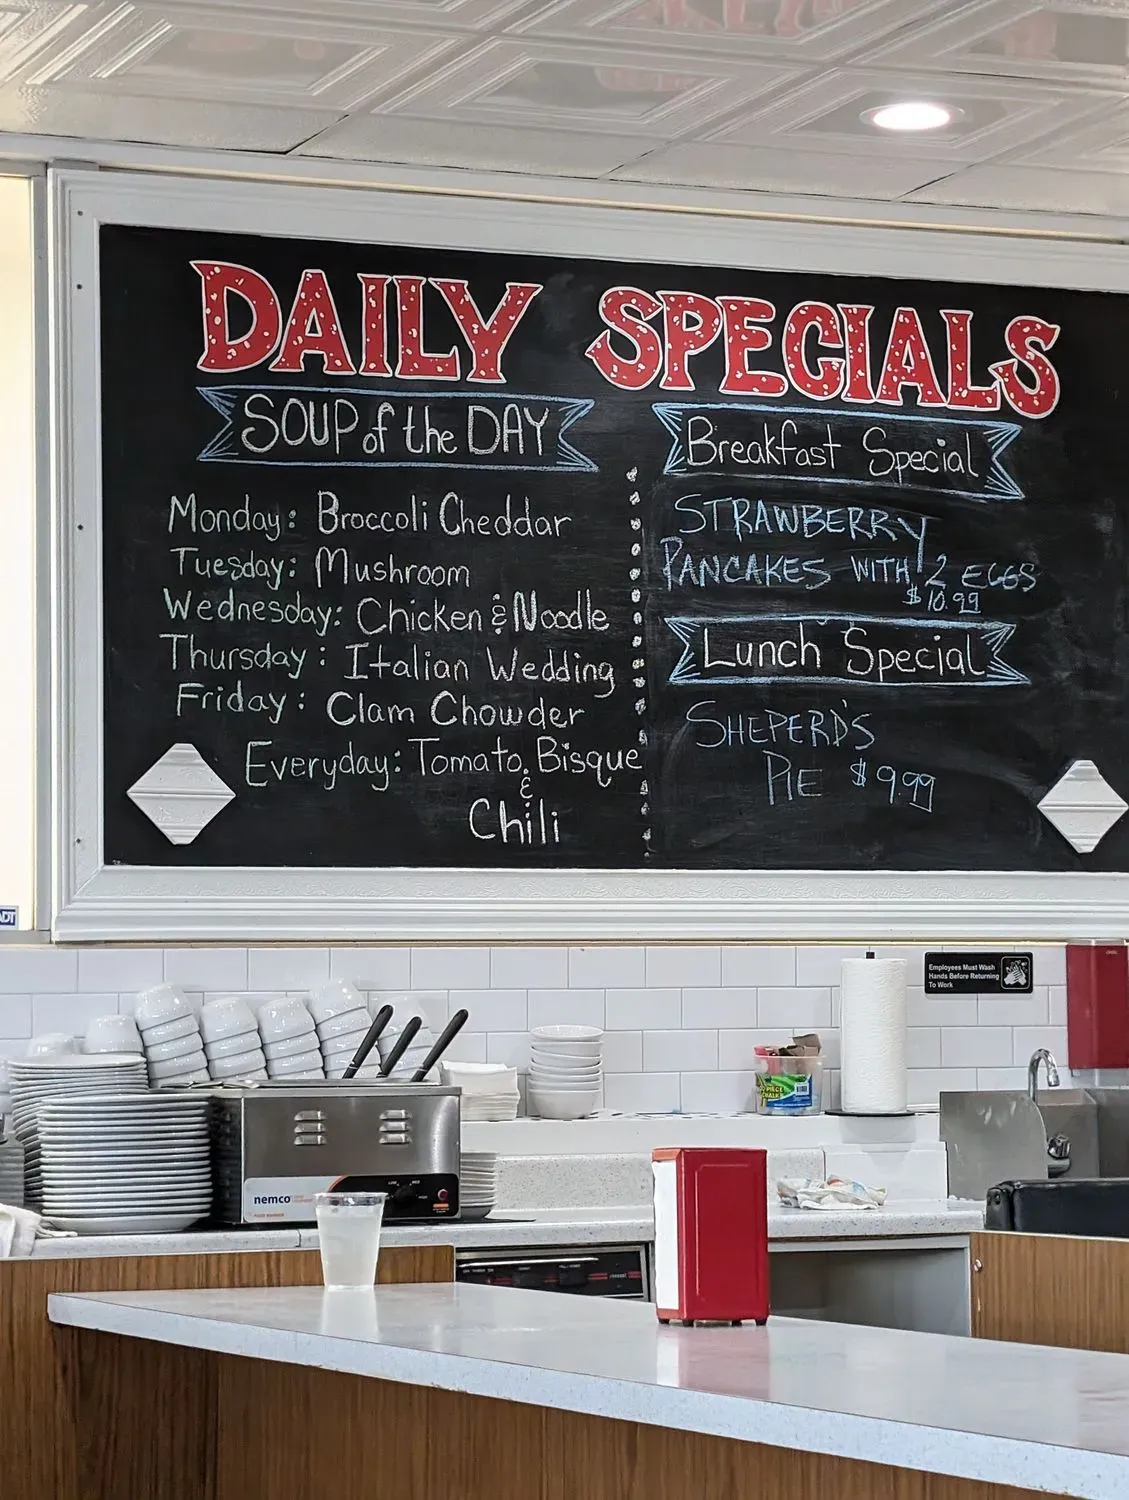 DAILY SPECIALS
SOUP of the DAY
Monday: Broccoli Cheddar
Tuesday: Mushroom
Wednesday: Chicken & Noodle
Thursday: Italian Wedding
Friday: Clam Chowder
Everyday: Tomato Bisque
&
Chili
Breakfast Special
STRAWBERRY
PANCAKES WITH 2 EGGS
$10.99
Lunch Special
SHEPERD'S
PIE $9.99
ADT
Employees Must Wash
Hands Before Returning
To Work
CHALK
nemco